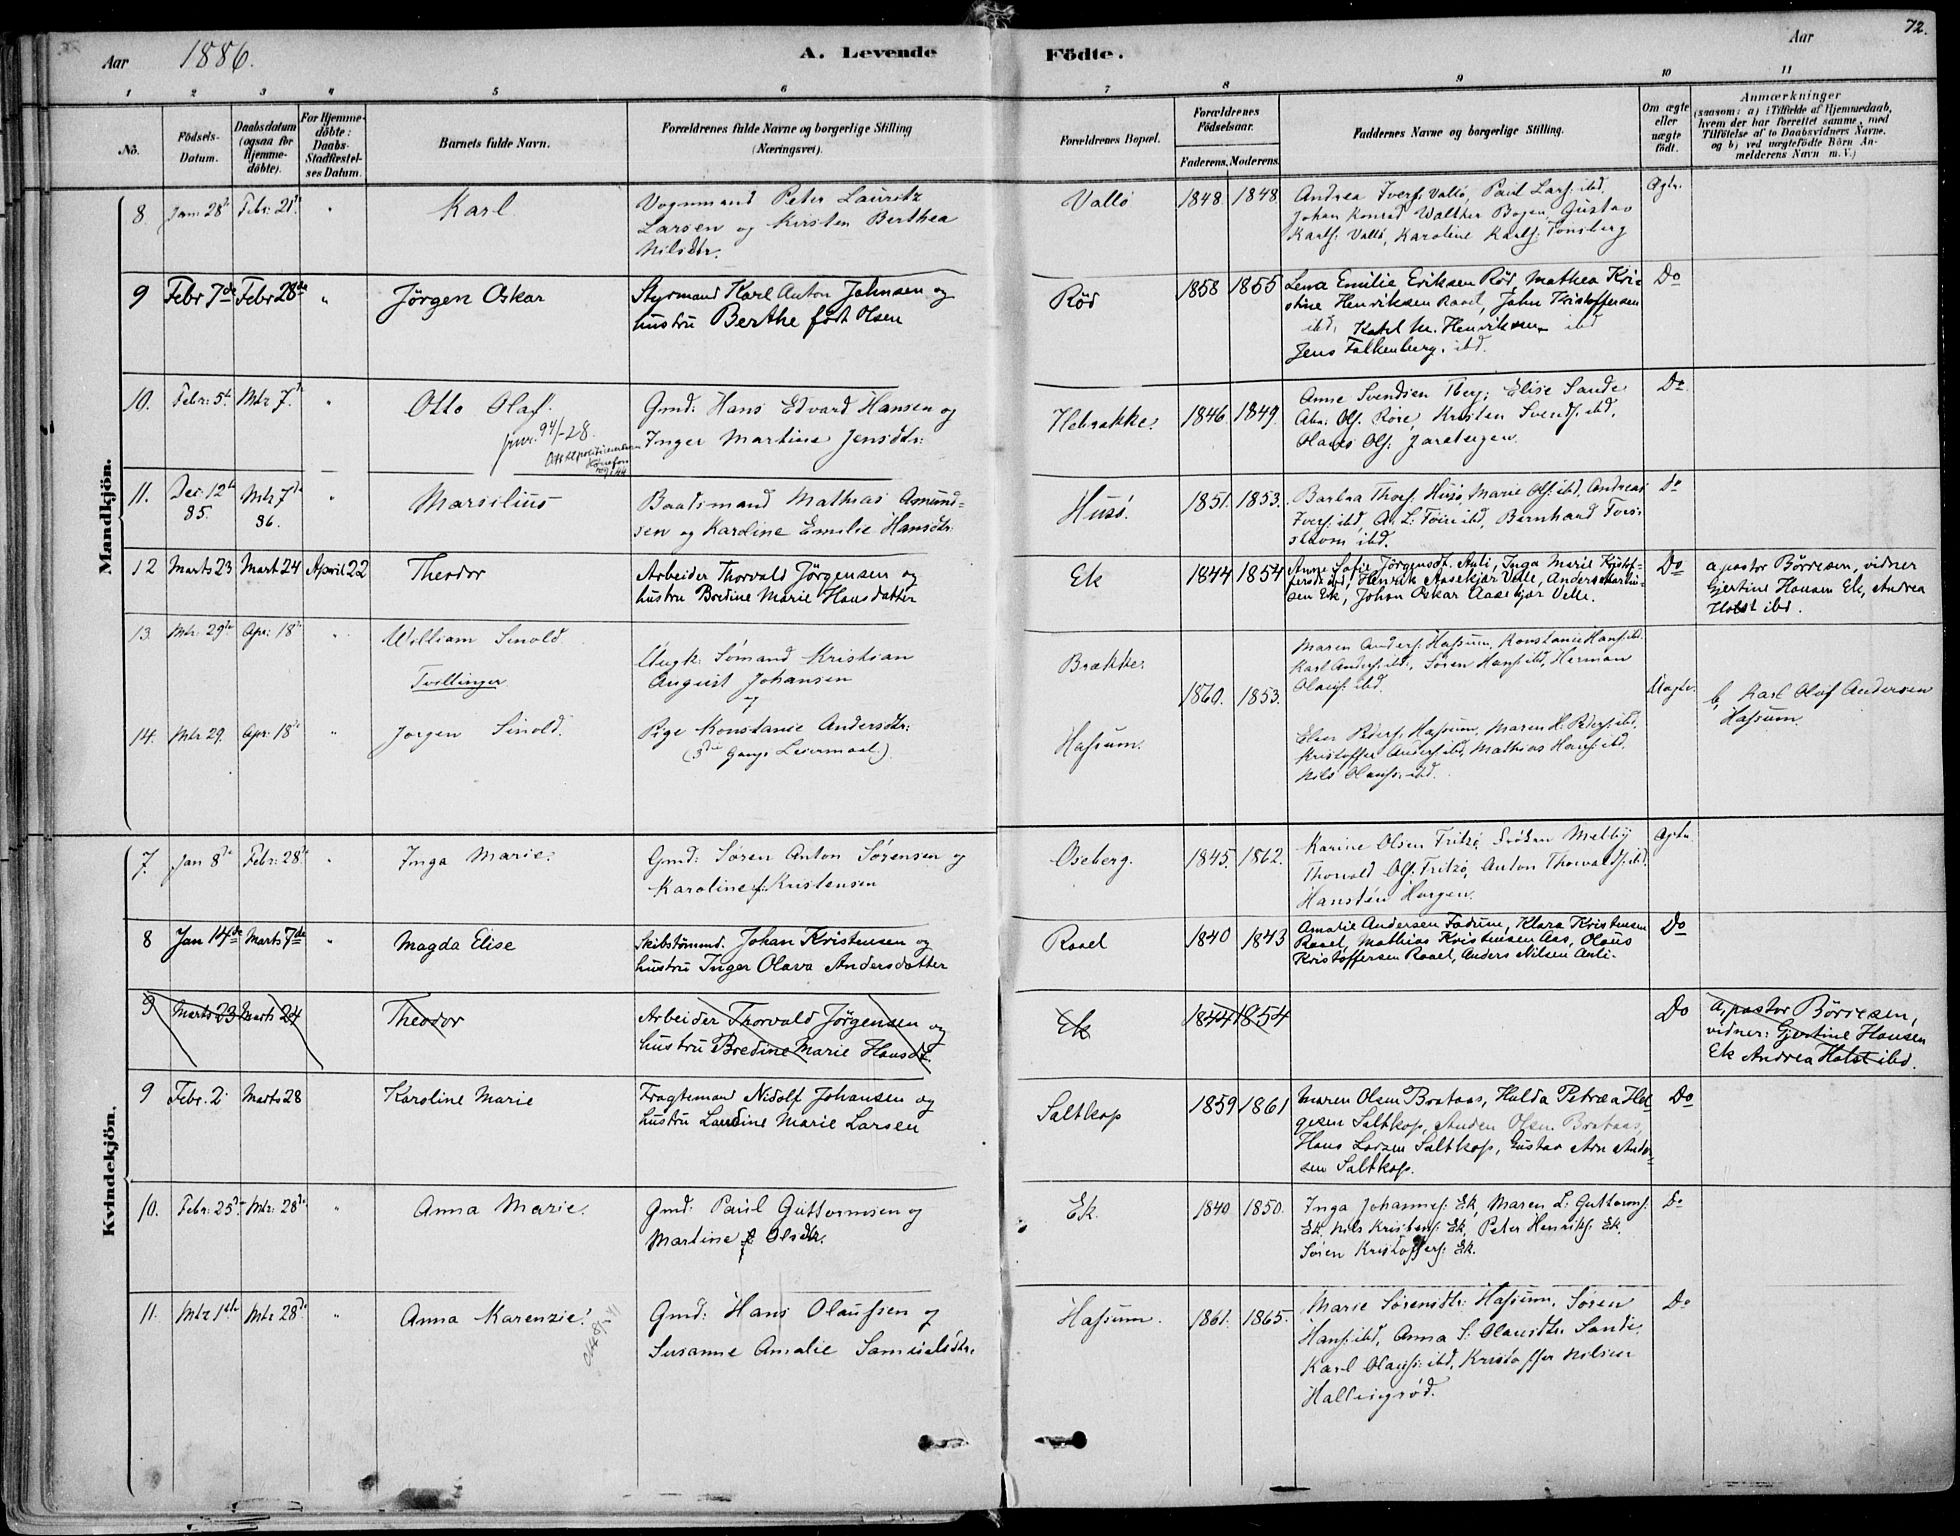 72.
Aar 1886. A. Levende Födte. Aar
1 2 3 4 5 6 7 8 9 10 11
No. Födsels-Datum. Daabsdatum (ogsaa for Hjemme-döbte). For Hjemme-döbte: Daabs-Stadfæstel-ses Datum. Barnets fulde Navn. Forældrenes fulde Navne og borgerlige Stilling (Næringsvei). Forældrenes Bopæl. Forældrenes Födselsaar. Faderens. Moderens. Faddernes Navne og borgerlige Stilling. Om ægte eller uægte födt. Anmærkninger (saasom: a) i Tilfælde af Hjemmedaab, hvem der har forrettet samme, med Tilföielse af to Daabsvidners Navne, og b) ved uægtefödte Börn An-melderens Navn m. V.)
Mandkjön.
8. Jan: 28de Febr: 21de " Karl
Vognmand Peter Lauritz
Larsen og Kirsten Berthea
Nilsdtr.
Vallö 1848 1848.
Andrea Iversf: Vallö, Paul Larsf: ibd.
Johan Konrad Walther Bogen, Gustav
Karlsf: Vallö, Karoline Karlsf: Tönsberg
Ægte.
9 Febr 7de Febr 28de " Jörgen Oskar
Styrmand Karl Anton Johnsen og
hustru Berthe född Olsen
Röd 1858 1855
Lena Emilie Eriksen Röd, Mathea Kri-
stine Henriksen Raael, John Kristoffersen
ibd, Karl M. Henriksen ibd
Jens Falkenberg, ibd.
Do
10. Febr: 5te Mtr 7de " Otto Olaf.
94/-28.
Gmd: Hans Edvard Hansen og
Inger Martine Jensdtr:
Hebrække. 1846 1849.
Anne Svendsen Tbeg; Elise Sande
Abr: Olsf. Röre, Kristen Svendsf: ibd.
Olaves Olsf: Jarebergen.
Do
11. Dec: 12te 85. Mtr 7de 86. " Marsilius
Baadsmand Mathias Amund-
sen og Karoline Emilie Hansdtr:
Husö. 1851. 1853.
Barbra Thorsf: Husö, Marie Olsf: ibd, Andreas
Iversf: ibd, A. L. Föire ibd, Bernhard Fors-
ström ibd.
Do
12 Marts 23 Mart 24 April 22 Theodor
Arbeider Thorvald Jörgensen og
hustru Bredine Marie Hansdatter
Ek 1844 1854
Anne Sofie Jörgensdt. Auli, Inga Marie Kristof-
fersdt ibd, Henrik Aasekjær Velle, Anders Martin-
sen Ek, Johan Oskar Aasekjær Velle.
Do
a, pastor Börresen, vidner
Gjertine Hansen Ek, Andrea
Holst ibd.
13. Mtr: 29de Apr: 18de " William Sinold
Tvillinger
Ungk: Sömand Kristian
August Johansen
og
Brække 1860. 1853.
Maren Andersf: Hassum, Konstanie Hansf: ibd.
Karl Andersf: ibd., Sören Hansf: ibd, Herman
Olausf: ibd.
Uægte.
b, Karl Olaf Andersen
Hassum
14. Mtr 29. Apr: 18de " Jorgen Sinold.
Pige Konstanie Andersdtr:
(3die Gangs Leiermaal.)
Hassum.
Elen Pedersf: Hassum, Maren H. Pedersf: ibd,
Kristoffer Andersf: ibd, Mathias Hansf: ibd,
Nils Olausf: ibd.
Kvindekjön.
7. Jan 8de Febr: 28de " Inga Marie.
Gmd: Sören Anton Sörensen og
Karoline f. Kristensen
Oseberg. 1845. 1862.
Karine Olsen Fritzö, Fröken Melby
Thorvald Olsf: Fritzö, Anton Thorvaldsf: ibd.
Hanstén Horgen.
Ægte
8 Jan 14de Marts 7de " Magda Elise
Skibstömmd. Johan Kristensen og
hustru Inger Olava Andersdatter
Raael 1840 1843
Amalie Andersen Fadum, Klara Kristensen
Raael, Mathias Kristensen Aas, Olaus
Kristoffersen Raael, Anders Nilsen Auli-
Do
9 Marts 23 Marts 24 Theodor
Arbeider Thorvald Jörgensen og
hustru Bredine Marie Hansdt.
Ek 1844 1854
Do
a, pastor Börresen,
vidner: Gjertine Hansen
Ek Andrea Holst ibd.
9 Febr. 2. Marts 28 Karoline Marie
Fragtemand Nidolf Johansen og
hustru Laurdine Marie Larsen
Saltkop 1859 1861
Maren Olsen Brataas, Hulda Petræa Hel-
gesen Saltkop, Anders Olsen Brataas,
Hans Larsen Saltkop, Gustav Arn Ander-
sen Saltkop.
Do
10. Febr: 25de Mtr: 28de " Anna Marie.
Gmd: Paul Guttormsen og
Martine f Olsdtr.
Ek. 1840 1850.
Inga Johannesf: Ek, Maren L: Guttormsf:
Ek, Nils Kristensf: Ek, Peter Henriksf: Ek,
Sören Kristoffersf: Ek.
Do
11. Mtr 1ste Mtr 28de " Anna Karenzie.
Gmd: Hans Olaussen og
Susanne Amalie Samuelsdtr.
Hassum. 1861. 1865.
Marie Sörensdtr: Hassum, Sören
Hansf: ibd, Anna S: Olausdtr: Sande,
Karl Olausf: ibd, Kristoffer Nilsen
Hallingröd.
Do